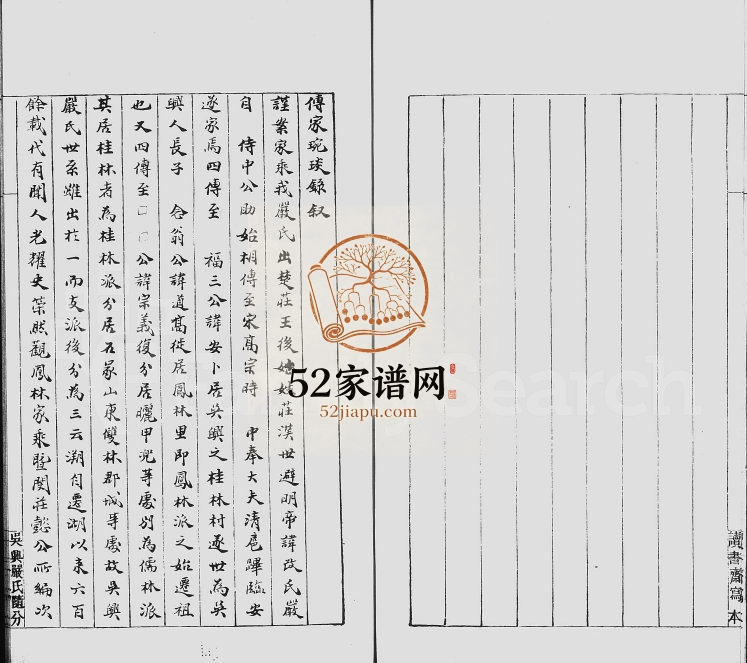 傳家琬琰錄叙
謹案家乘我嚴氏出楚莊王後始姓莊漢世避明帝諱改氏嚴
自 侍中公助始相傳至宋高宗時 中奉大夫清扈蹕臨安
遂家焉四傳至 福三公諱安卜居吳興之桂林村遂世為吳
興人長子 念翁公諱道高徙居鳳林里即鳳林派之始遷祖
也又四傳至□□公諱宗義復分居曬甲兜等處别為儒林派
其居桂林者為桂林派分居石冢山東雙林郡城等處故吳興
嚴氏世系雖出於一而支派後分為三云溯自遷湖以来六百
餘載代有聞人光耀史策然觀鳳林家乘暨閔莊懿公所編次
吳興嚴氏隨分
讀書齋寫本
52家谱网
52jiapu.com
Search